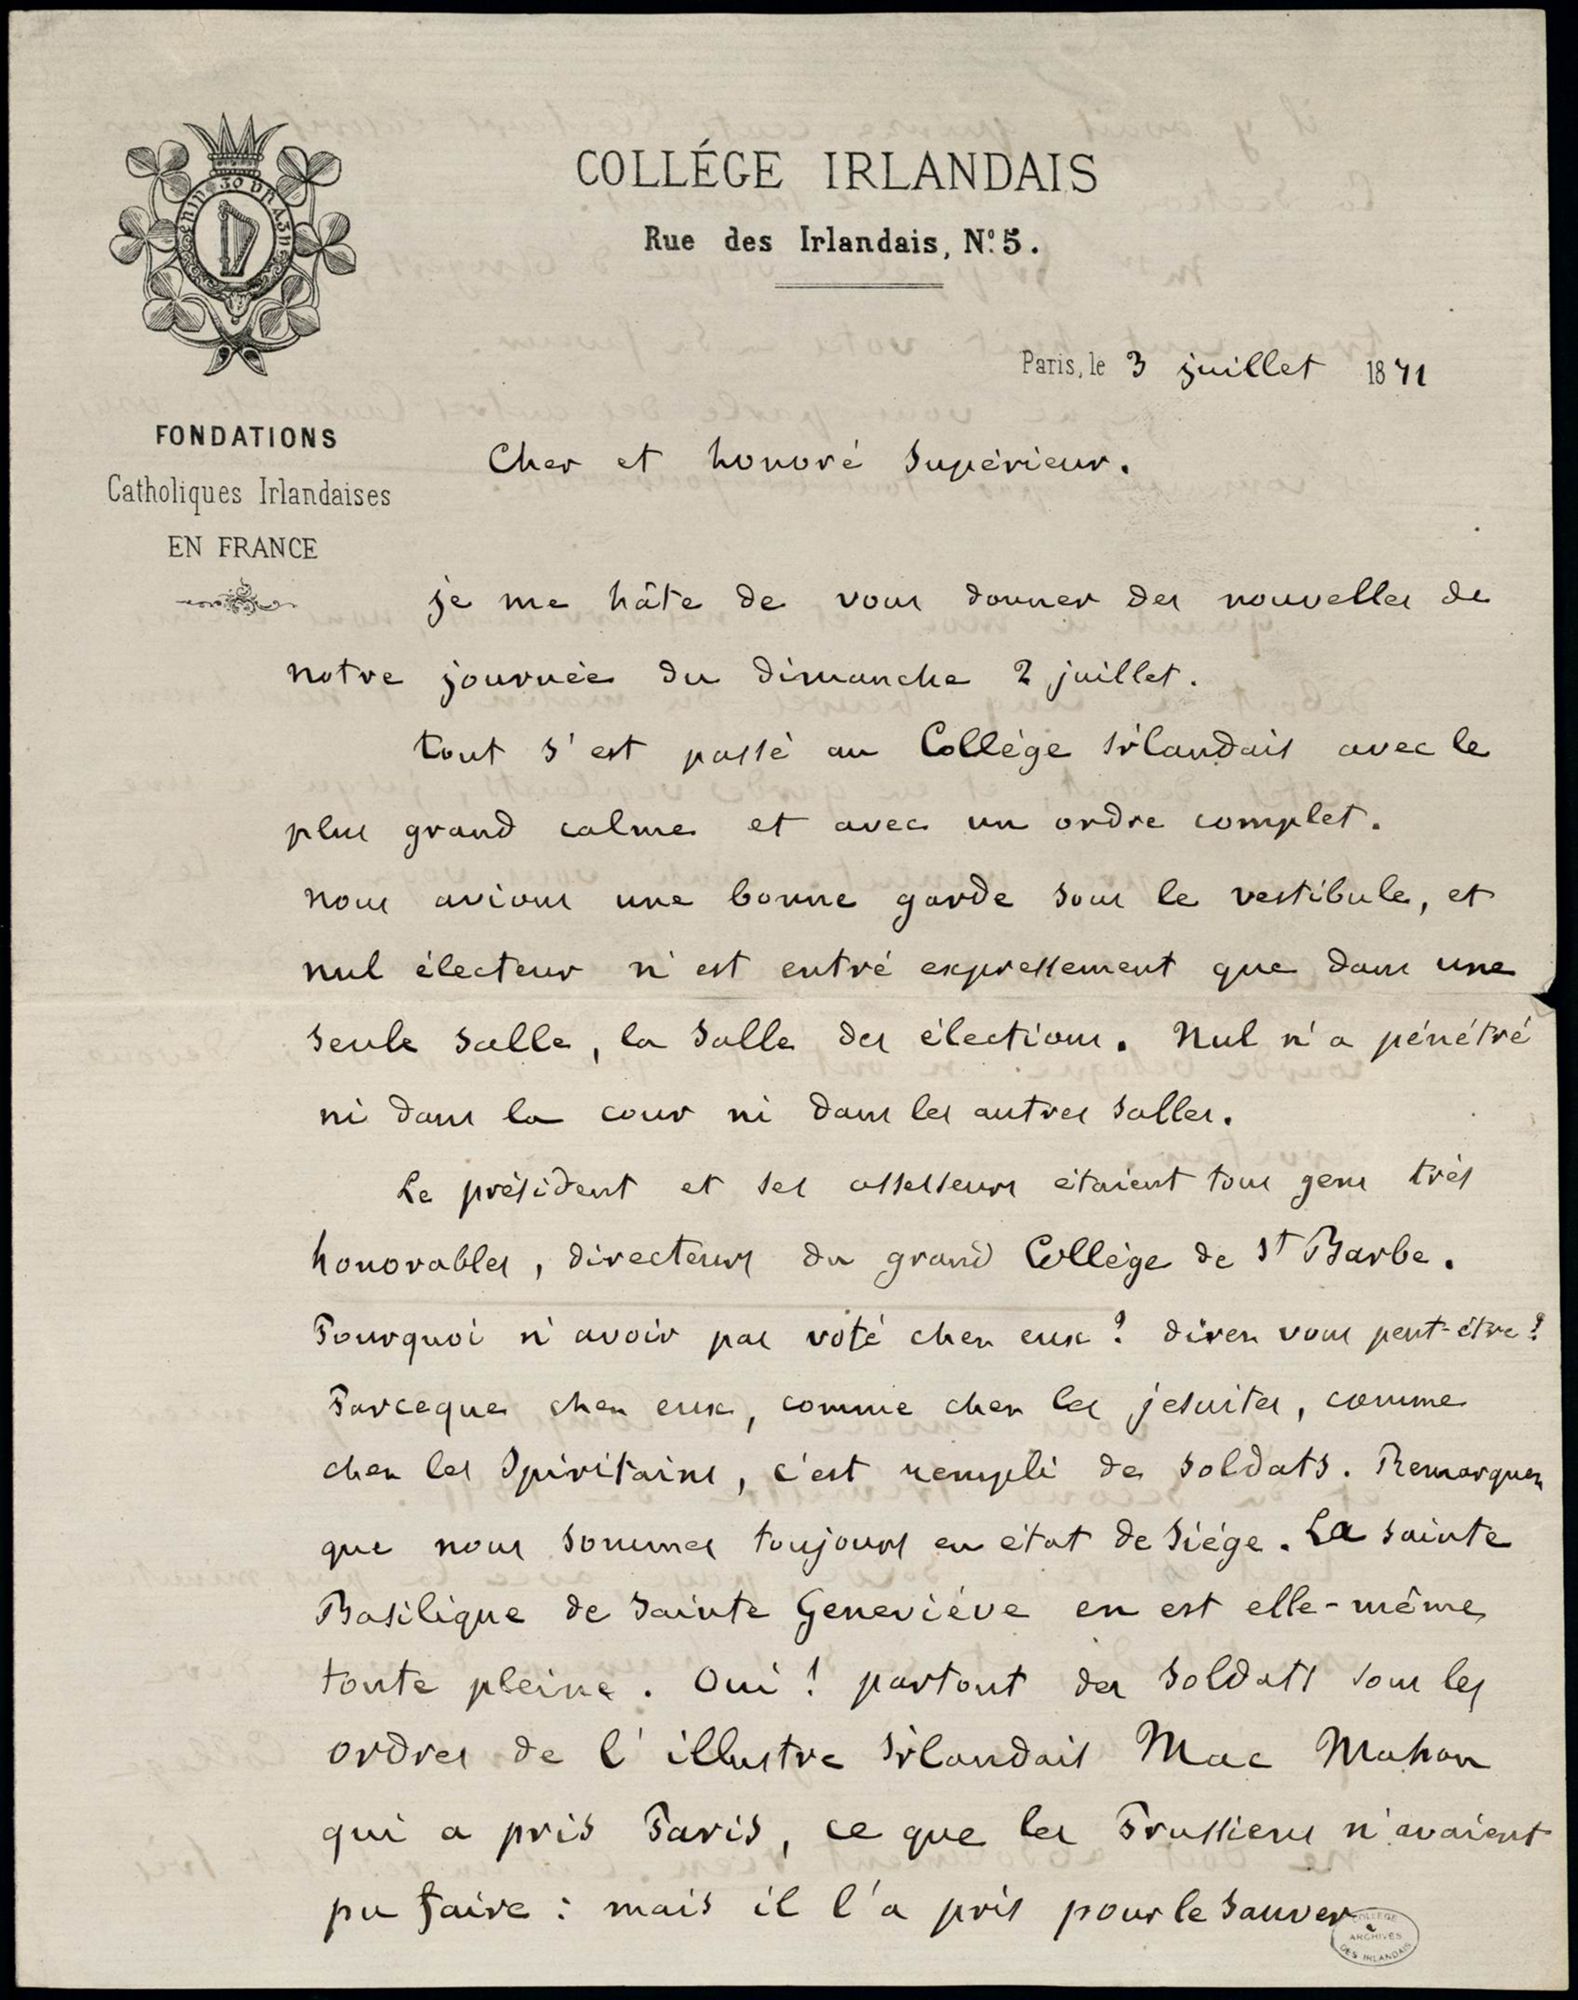 COLLÉGE IRLANDAIS
Rue des Irlandais, No. 5.
Paris, le 3 juillet 1871
FONDATIONS
Catholiques Irlandaises
EN FRANCE
Cher et honoré Supérieur.
je me hâte de vous donner des nouvelles de
notre journée du dimanche 2 juillet.
tout s'est passé au Collége irlandais avec le
plus grand calme et avec un ordre complet.
nous avions une bonne garde sous le vestibule, et
nul électeur n'est entré expressement que dans une
seule salle, la salle des élections. Nul n'a pénétré
ni dans la cour ni dans les autres salles.
Le président et ses assesseurs étaient tous gens très
honorables, directeurs du grand Collége de St Barbe.
Pourquoi n'avoir pas voté chez eux ? direz vous peut-être ?
Parceque chez eux, comme chez les jesuites, comme
chez les Spiritains, c'est rempli de soldats. Remarquez
que nous sommes toujours en état de siége. La sainte
Basilique de Sainte Geneviéve en est elle-même
toute pleine. Oui ! partout des soldats sous les
ordres de l'illustre irlandais Mac Mahon
qui a pris Paris, ce que les Prussiens n'avaient
pu faire : mais il l'a pris pour le sauver
COLLEGE
ARCHIVES
DES IRLANDAIS